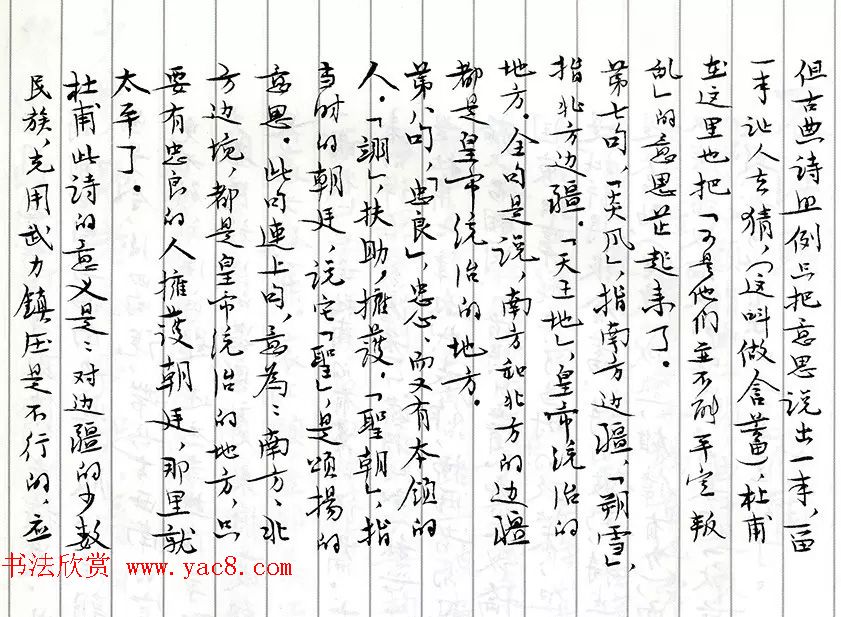 但古典诗照例只把意思说出一半，留
一半让人去猜，（这叫做含蓄），杜甫
在这里也把「可是他们并不能平定叛
乱」的意思芷起来了。
第七句，「炎风」，指南方边疆，「朔雪」，
指北方边疆。「天王地」，皇帝统治的
地方。全句是说，南方和北方的边疆
都是皇帝统治的地方。
第八句，「忠良」，忠心、而又有本领的
人。「翊」，扶助，擁護。「聖朝」，指
当时的朝廷，说它「聖」，是頌揚的
意思。此句連上句，意為：南方、北
方边境，都是皇帝统治的地方，只
要有忠良的人擁護朝廷，那里就
太平了。
杜甫此诗的意义是：对边疆的少数
民族，光用武力鎮压是不行的，应
书法欣赏 www.yac8.com